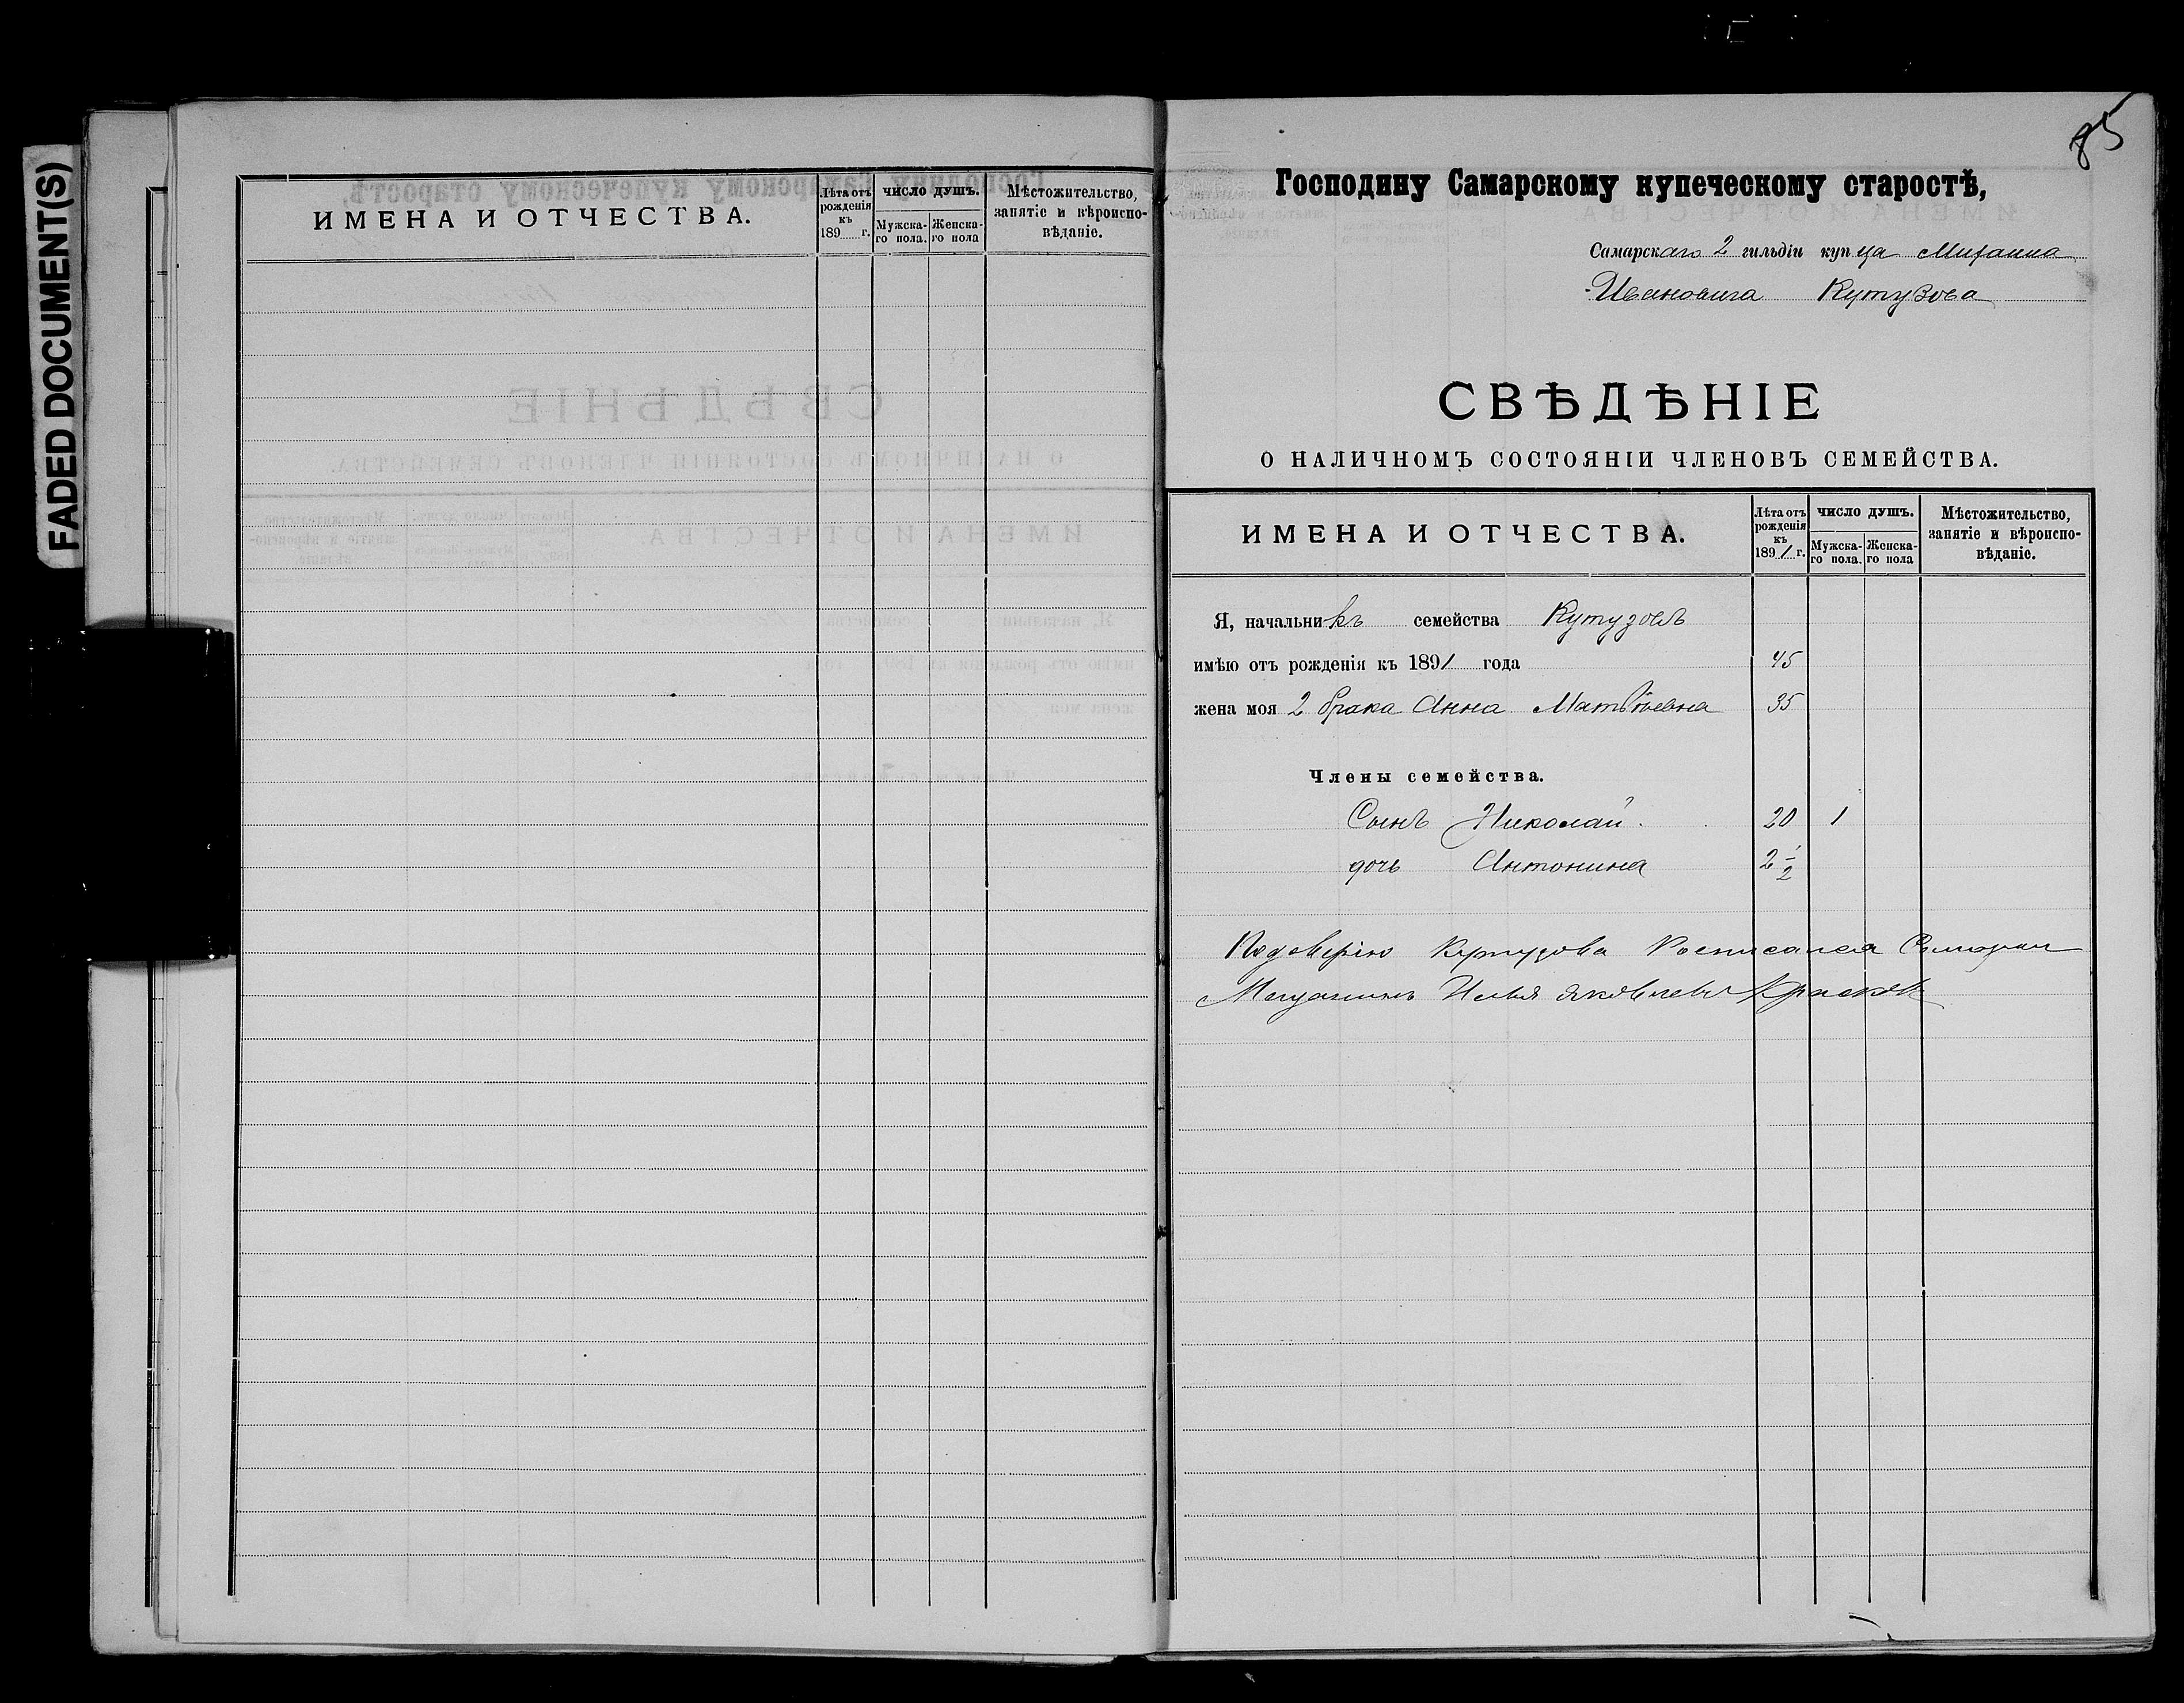 FADED DOCUMENT(S)
ИМЕНА И ОТЧЕСТВА.
Лѣта отъ рожденія къ 189 г.
ЧИСЛО ДУШЪ.
Мужска-го пола.
Женска-го пола
Мѣстожительство, занятіе и вѣроиспо-вѣданіе.
85
Господину Самарскому купеческому старостѣ,
Самарскаго 2 гильдіи купца Михаила
Ивановича Кутузова
СВѢДѢНІЕ
О НАЛИЧНОМЪ СОСТОЯНІИ ЧЛЕНОВЪ СЕМЕЙСТВА.
ИМЕНА И ОТЧЕСТВА.
Лѣта отъ рожденія къ 1891 г.
ЧИСЛО ДУШЪ.
Мужска-го пола.
Женска-го пола
Мѣстожительство, занятіе и вѣроиспо-вѣданіе.
Я, начальникъ семейства Кутузовъ
имѣю отъ рожденія къ 1891 года 45
жена моя 2 брака Анна Матвѣевна 35
Члены семейства.
Сынъ Николай. 20 1
дочь Антонина 2 1/2
Кутузова Росписался
Мещанинъ Илья Яковлевъ